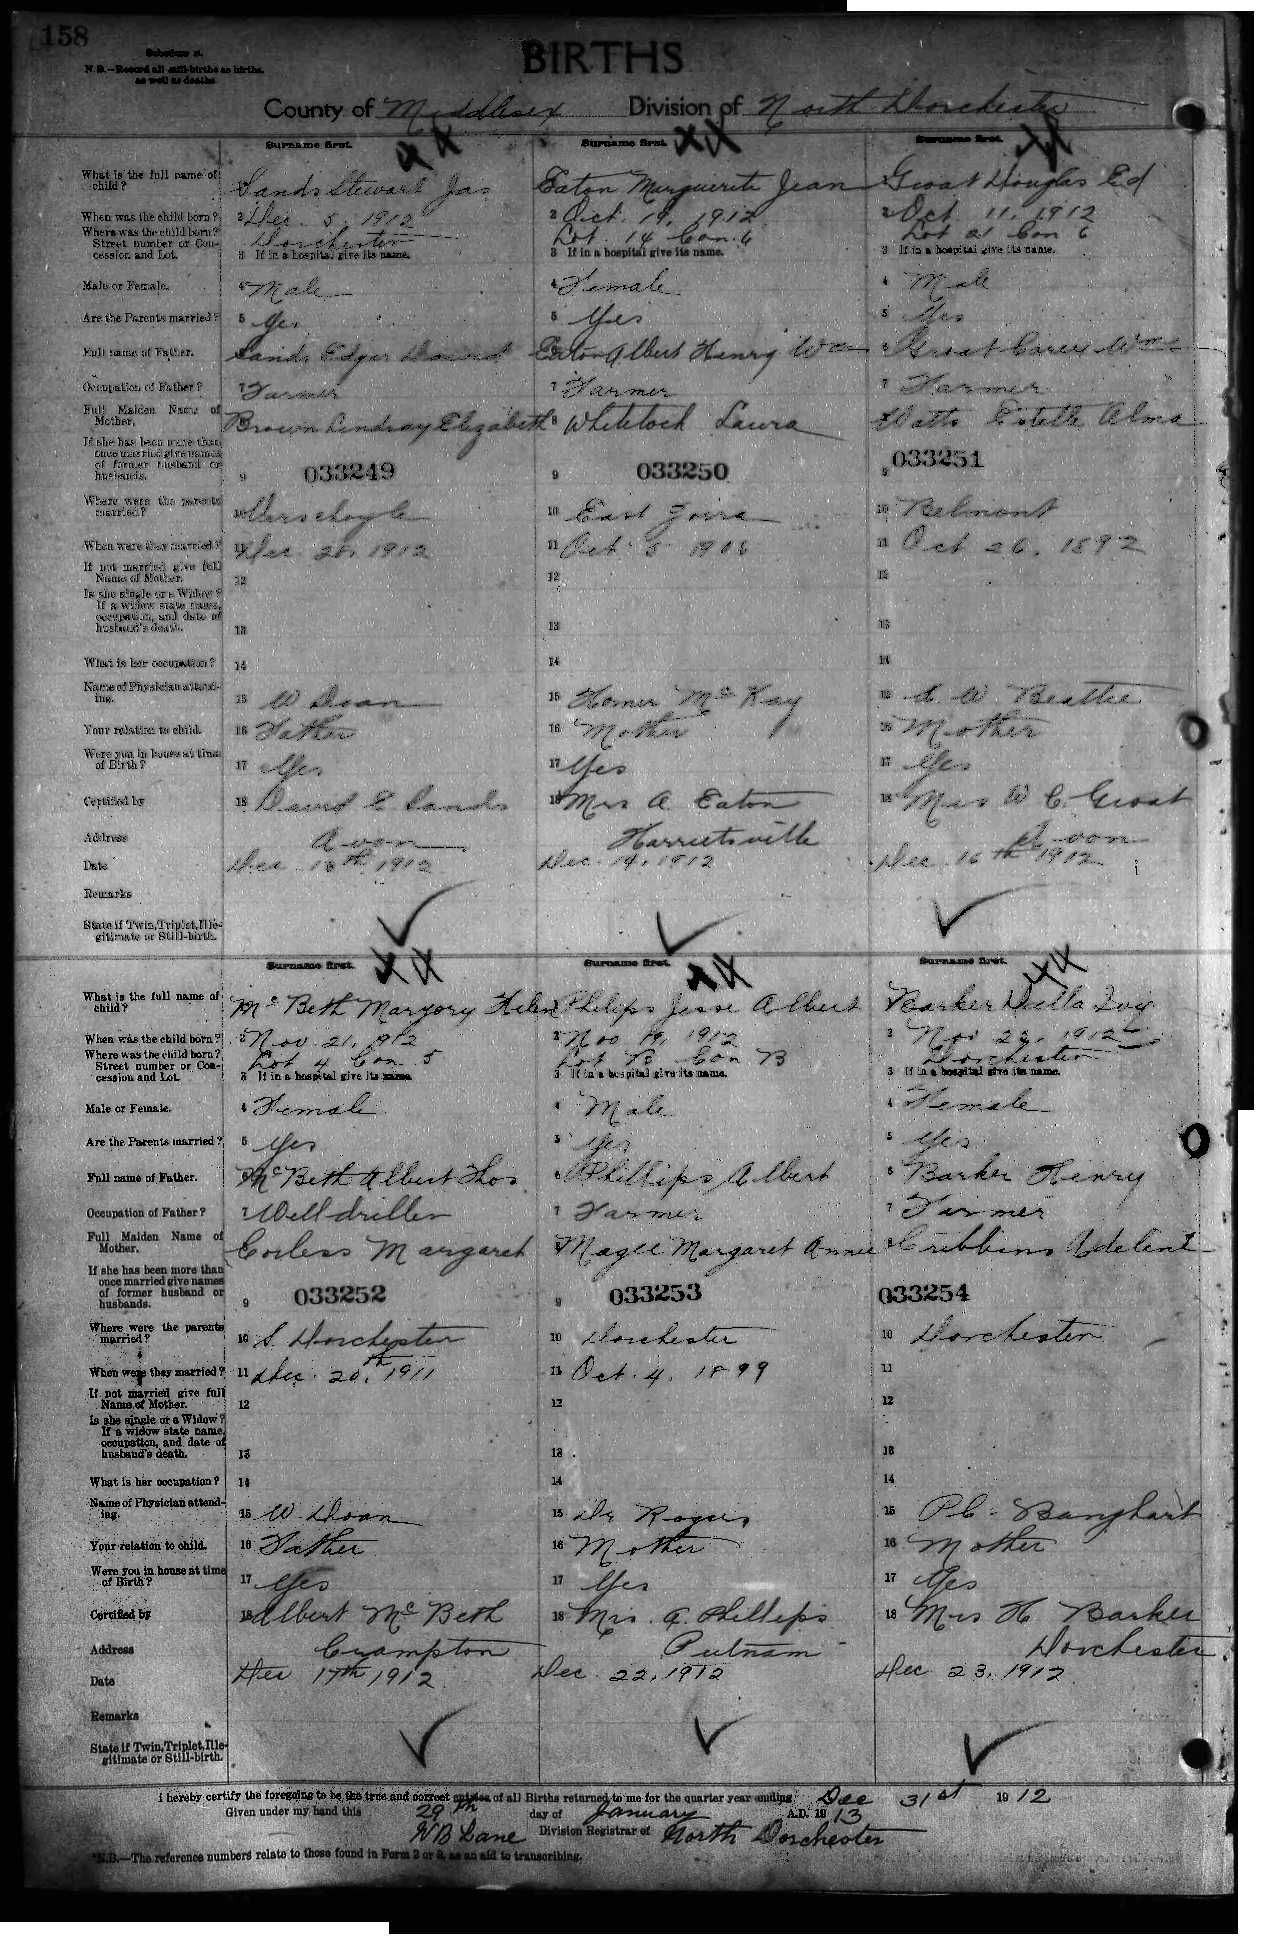 158
Schedule A.
N.B.—Record all still-births as births,
as well as deaths
BIRTHS
County of Middlesex Division of North Dorchester
Surname first. Surname first. Surname first.
What is the full name of child? Sands Stewart Jas Eaton Marguerite Jean Groat Douglas Ed
When was the child born? 2 Dec. 5, 1912 2 Oct. 19, 1912 2 Oct 11, 1912
Where was the child born? Street number or Concession and Lot. Dorchester Lot 14 Con. 6 Lot 21 Con 6
3 If in a hospital give its name. 3 If in a hospital give its name. 3 If in a hospital give its name.
Male or Female. 4 Male 4 Female 4 Male
Are the Parents married? 5 Yes 5 Yes 5 Yes
Full name of Father. Sands Edgar David Eaton Albert Henry Wm Groat Carey Wm
Occupation of Father? 7 Farmer 7 Farmer 7 Farmer
Full Maiden Name of Mother. Brown Lindsay Elizabeth 8 Whitelock Laura Watts Estella Alma
If she has been more than once married give names of former husband or husbands. 9 033249 9 033250 9 033251
Where were the parents married? 10 Verschoyle 10 East Zorra 10 Belmont
When were they married? 11 Dec. 20, 1912 11 Oct 5 1906 11 Oct 26, 1892
If not married give full Name of Mother. 12 12 12
Is she single or a Widow? If a widow state name, occupation, and date of husband's death. 13 13 13
What is her occupation? 14 14 14
Name of Physician attending. 15 W Doan 15 Homer McKay 15 W Beattie
Your relation to child. 16 Father 16 Mother 16 Mother
Were you in house at time of Birth? 17 Yes 17 Yes 17 Yes
Certified by 18 David E Sands 18 Mrs A. Eaton 18 Mrs W C. Groat
Address Avon Harrietsville Avon
Date Dec 13th 1912 Dec. 14, 1912 Dec 16th 1912
Remarks
State if Twin, Triplet, Illegitimate or Still-birth.
Surname first. Surname first. Surname first.
What is the full name of child? McBeth Margory Helen Philips Jesse Albert Barker Della Ivy
When was the child born? 2 Nov. 21, 1912 2 Nov 19, 1912 2 Nov 22, 1912
Where was the child born? Street number or Concession and Lot. Lot 4 Con 5 Lot B Con B Dorchester
3 If in a hospital give its name. 3 If in a hospital give its name. 3 If in a hospital give its name.
Male or Female. 4 Female 4 Male 4 Female
Are the Parents married? 5 Yes 5 Yes 5 Yes
Full name of Father. McBeth Albert Thos 6 Phillips Albert 6 Barker Henry
Occupation of Father? 7 Welldriller 7 Farmer 7 Farmer
Full Maiden Name of Mother. Corless Margaret Magee Margaret Annie Cribbins
If she has been more than once married give names of former husband or husbands. 9 033252 9 033253 033254
Where were the parents married? 10 S. Dorchester 10 Dorchester 10 Dorchester
When were they married? 11 Dec. 20th, 1911 11 Oct. 4, 1899 11
If not married give full Name of Mother. 12 12 12
Is she single or a Widow? If a widow state name, occupation, and date of husband's death. 13 13 13
What is her occupation? 14 14 14
Name of Physician attending. 15 W. Doan 15 Dr Rogers 15 P C. Banghart
Your relation to child. 16 Father 16 Mother 16 Mother
Were you in house at time of Birth? 17 Yes 17 Yes 17 Yes
Certified by 18 Albert McBeth 18 Mrs. A. Phillips 18 Mrs H. Barker
Address Crampton Putnam Dorchester
Date Dec 17th 1912 Dec. 22, 1912 Dec 23, 1912
Remarks
State if Twin, Triplet, Illegitimate or Still-birth.
I hereby certify the foregoing to be the true and correct entries of all Births returned to me for the quarter year ending Dec 31st 1912
Given under my hand this 29th day of January A.D. 1913
W B Lane Division Registrar of North Dorchester
*N.B.—The reference numbers relate to those found in Form 2 or 3, as an aid to transcribing.